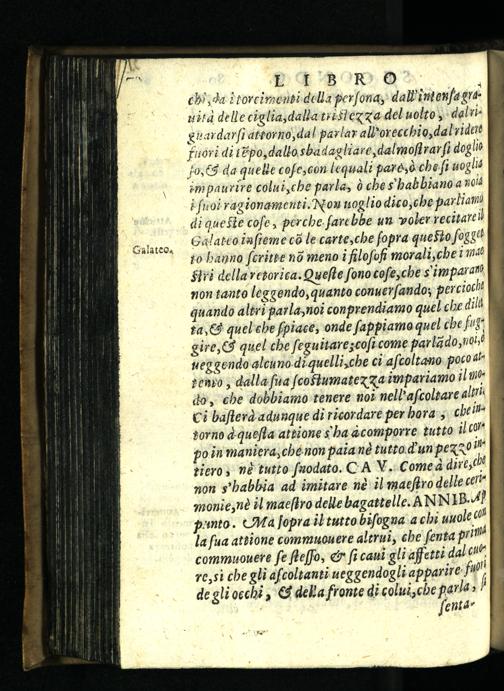 LIBRO
chi, da i torcimenti della persona, dall'intensa gra-
uità delle ciglia, dalla tristezza del uolto, dal ri-
guardarsi attorno, dal parlar all'orecchio, dal ridere
fuori di tēpo, dallo sbadagliare, dal mostrarsi doglio
so, & da quelle cose, con lequali pare, ò che si uoglia
impaurire colui, che parla, ò che s'habbiano a noia
i suoi ragionamenti. Non uoglio dico, che parliamo
di queste cose, perche sarebbe un voler recitare il
Galateo.
Galateo insieme cō le carte, che sopra questo sogget
to hanno scritte nō meno i filosofi morali, che i mae
stri della retorica. Queste sono cose, che s'imparano
non tanto leggendo, quanto conuersando; percioche
quando altri parla, noi conprendiamo quel che dilet
ta, & quel che spiace, onde sappiamo quel che fug-
gire, & quel che seguitare; cosi come parlādo, noi, &
ueggendo alcuno di quelli, che ci ascoltano poco at-
tento, dalla sua scostumatezza impariamo il mo-
do, che dobbiamo tenere noi nell'ascoltare altri.
Ci basterà adunque di ricordare per hora, che in-
torno à questa attione s'ha à comporre tutto il cor-
po in maniera, che non paia nè tutto d'un pezzo in-
tiero, nè tutto snodato. CAV. Come à dire, che
non s'habbia ad imitare nè il maestro delle ceri-
monie, nè il maestro delle bagattelle. ANNIB. Ap
punto. Ma sopra il tutto bisogna a chi uuole con
la sua attione commuouere altrui, che senta prima
commuouere se stesso, & si caui gli affetti dal cuo-
re, si che gli ascoltanti ueggendogli apparire fuori
de gli occhi, & della fronte di colui, che parla, si
senta-